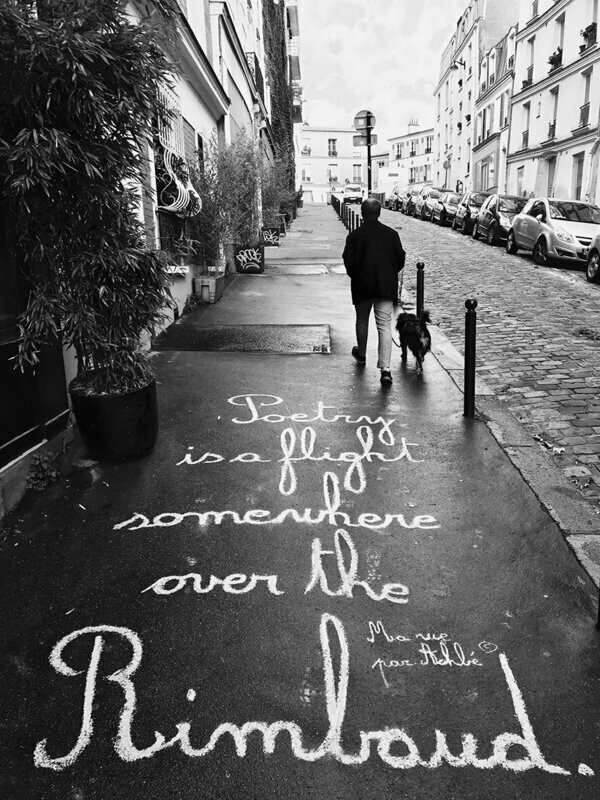 Poetry
is a flight
somewhere
over the
Rimbaud.
Ma rue ©
par Achbé